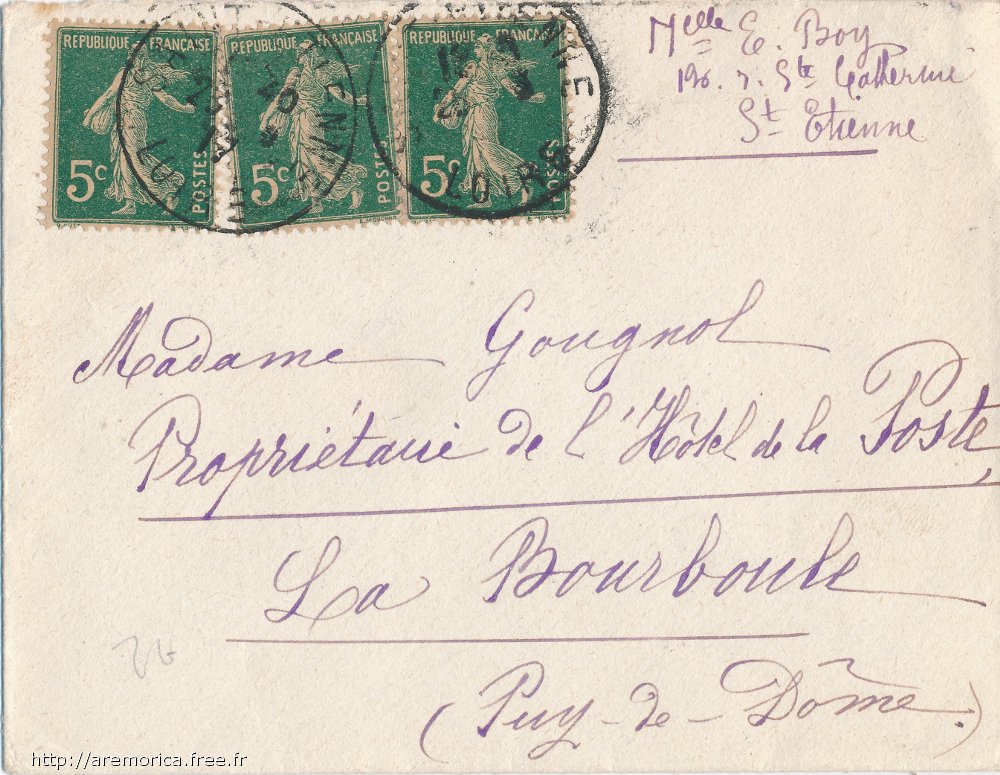 REPUBLIQUE FRANÇAISE
5c POSTES
REPUBLIQUE FRANÇAISE
5c POSTES
REPUBLIQUE FRANÇAISE
5c POSTES
LOIRE
Melle E. Boy
r. Ste Catherine
St Etienne
Madame Gougnol
Propriétaire de l'Hôtel de la Poste,
La Bourboule
(Puy-de-Dôme.)
http://aremorica.free.fr